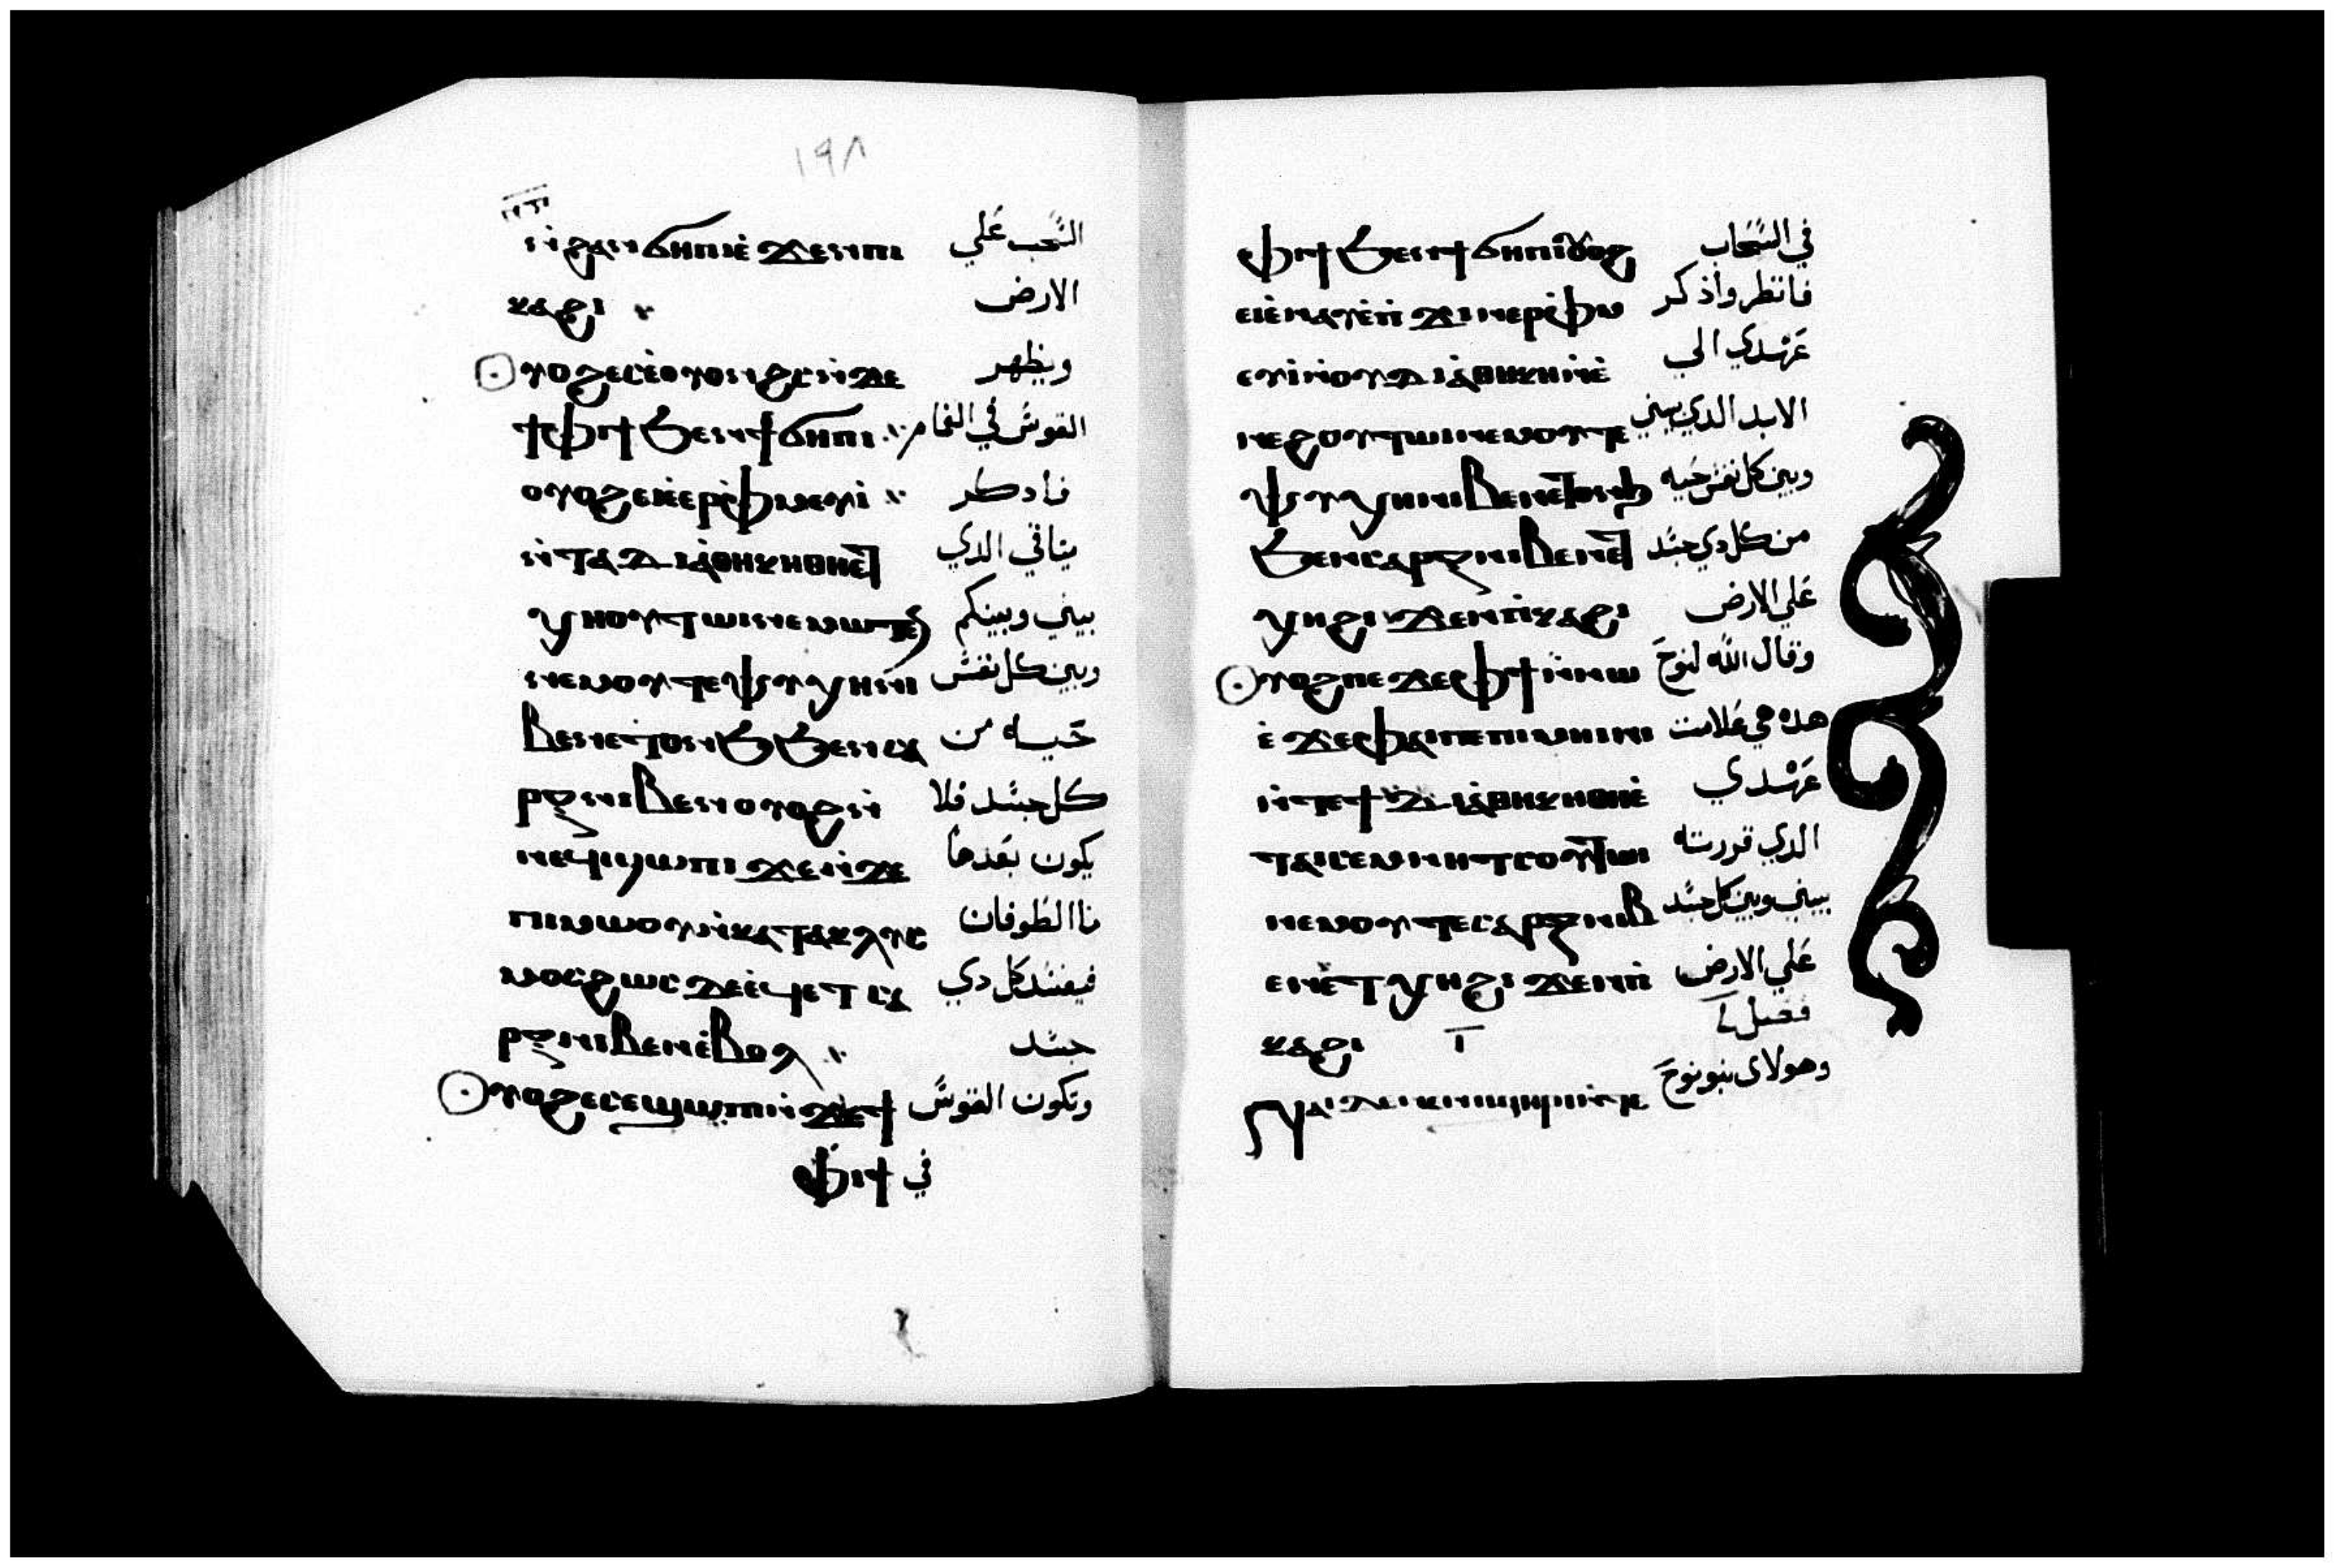 ١٩٨
ⲛ̀ϩⲁⲛϭⲏⲡⲓ ⲉ̀ϫⲉⲛⲡⲓ السَّحب عَلي
ⲕⲁϩⲓ الارض
ⲟⲩⲟϩ ⲉⲥⲉ̀ⲟⲩⲟⲛϩⲥ ⲛ̀ϫⲉ ويظهر
ϯⲫⲓϯ ϧⲉⲛϯϭⲏⲡⲓ القوس في الغمام
ⲟⲩⲟϩ ⲉⲓⲉ̀ⲉⲣⲫ̀ⲙⲉⲩⲓ̀ فادكر
ⲛ̀ⲧⲁⲇⲓⲁ̀ⲑⲏⲕⲏ ⲑⲏⲉⲧ ميتاقي الدي
ⲭⲏ ⲟⲩⲧⲱⲓ ⲛⲉⲙⲱⲧⲉⲛ بيني وبينكم
ⲛⲉⲙ ⲟⲩⲧⲉ ⲯⲩⲭⲏ ⲛⲓ وبين كل نفس
ⲃⲉⲛ ⲉⲧⲟⲛϧ ϧⲉⲛ ⲥⲁ حَيه من
ⲣⲝ ⲛⲓⲃⲉⲛ ⲟⲩⲟϩ ⲛ̀ كل جسد فلا
ⲛⲉϥϣⲱⲡⲓ ϫⲉ ⲛ̀ϫⲉ يكون بَعدها
ⲡⲓⲙⲱⲟⲩ ⲛ̀ⲕⲁⲧⲁⲕⲗⲩⲥ ماالطوفان
ⲙⲟⲥ ϩⲱⲥ ϫⲉ ⲉ̀ϥⲉⲧ ⲥⲁ فيفسد كل دي
ⲣⲝ ⲛⲓⲃⲉⲛ ⲉ̀ⲃⲟⲗ جسد
ⲟⲩⲟϩ ⲉⲥⲉϣⲱⲡⲓ ⲛ̀ϫⲉ ϯ وتكون القوس
ⲫⲓϯ في
ⲫⲓϯ ϧⲉⲛ ϯϭⲏⲡⲓ ⲟⲩⲟϩ في السَّحاب
ⲉⲓⲉ̀ⲛⲁⲩ ⲉ̀ⲡ̀ϫⲓⲛⲉⲣⲫ̀ⲙ فانظر واذكر
ⲉⲩⲓ̀ ⲛ̀ⲟⲩⲇⲓⲁ̀ⲑⲏⲕⲏ ⲛ̀ⲉ̀ عَهدي الي
ⲛⲉϩ ⲟⲩⲧⲱⲓ ⲛⲉⲙ ⲟⲩⲧⲉ الابد الدي بيني
ⲯⲩⲭⲏ ⲛⲓⲃⲉⲛ ⲉⲧⲟⲛϧ وبين كل نفس حَيه
ϧⲉⲛ ⲥⲁⲣⲝ ⲛⲓⲃⲉⲛ ⲉⲧ من كل دي جسد
ⲭⲏ ϩⲓϫⲉⲛ ⲡⲓⲕⲁϩⲓ عَلي الارض
ⲟⲩⲟϩ ⲡⲉϫⲉ ⲫϯ ⲛ̀ⲛⲱ وقال الله لنوحَ
ⲉ̀ ϫⲉ ⲫⲁⲓ ⲡⲉ ⲡⲓⲙⲏⲓⲛⲓ هده هي عَلامت
ⲛ̀ⲧⲉ ϯⲇⲓⲁ̀ⲑⲏⲕⲏ ⲑⲏⲉ̀ عَهدي
ⲧⲁⲓⲥⲉⲙⲛⲏⲧⲥ ⲟⲩⲧⲱⲓ الدي قررته
ⲛⲉⲙ ⲟⲩⲧⲉ ⲥⲁⲣⲝ ⲛⲓⲃ بيني وبين كل جسد
ⲉⲛ ⲉⲧⲭⲏ ϩⲓϫⲉⲛ ⲡⲓ عَلي الارض
ⲕⲁϩⲓ فصل
وهولاى بنو نوحَ